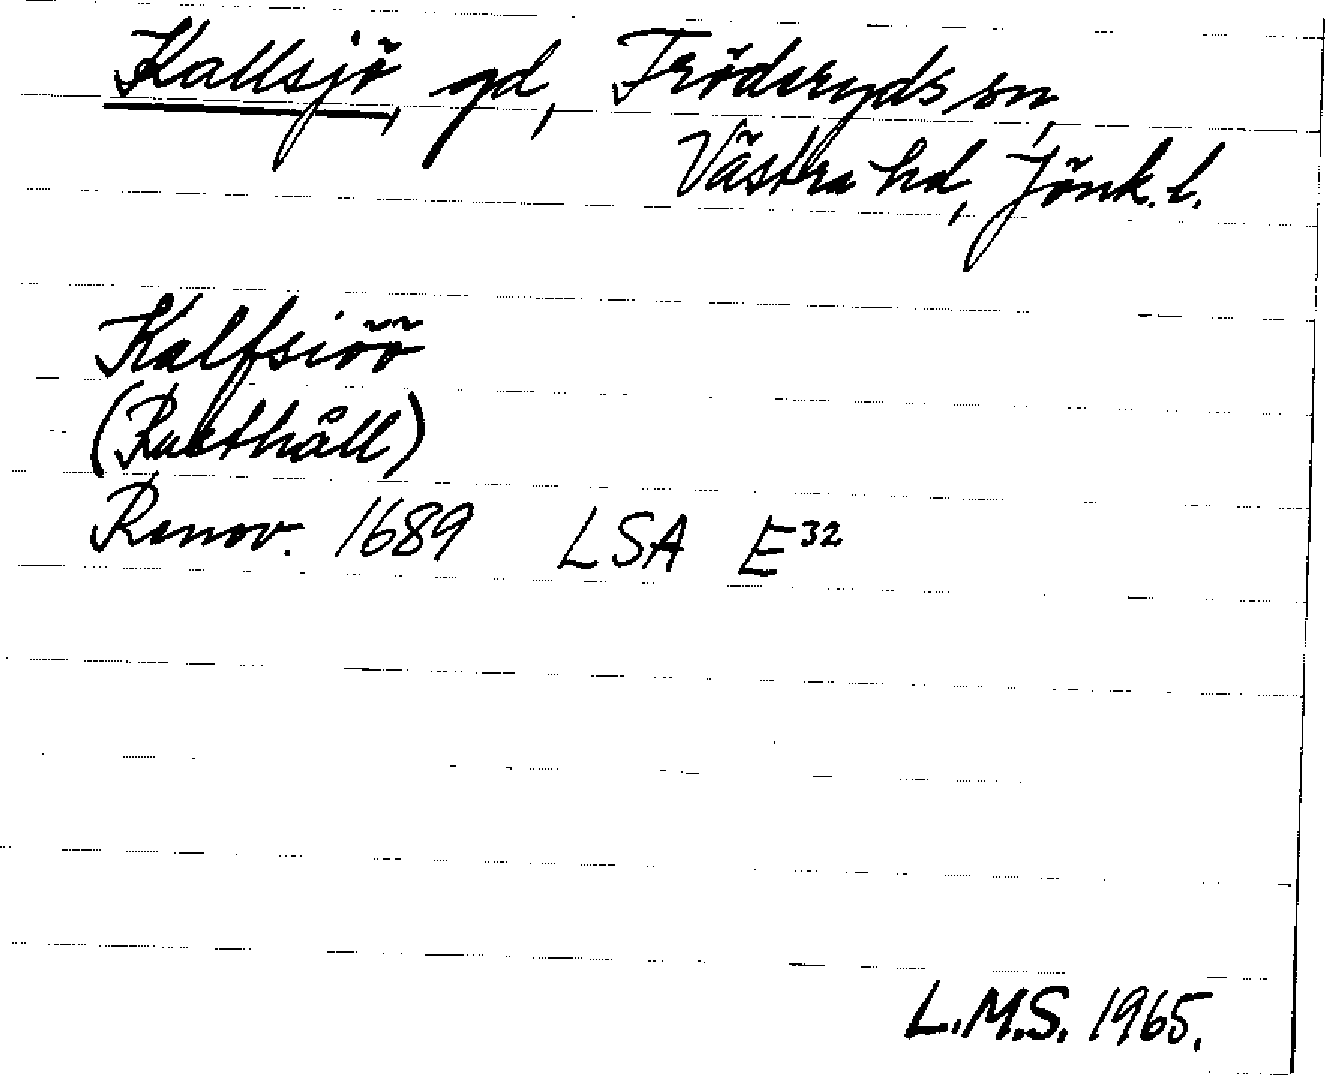 Kallsjö, gd, Fröderyds sn,
Västra hd, Jönk. l.
Kalfsiöö
(Rusthåll)
Renov. 1689 LSA E32
L.M.S. 1965.